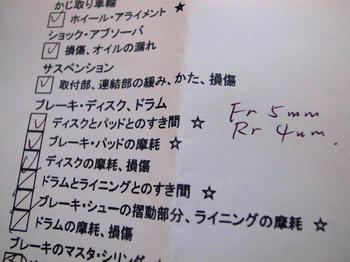 かじ取り車輪
ホイール・アライメント ☆
ショック・アブソーバ
損傷、オイルの漏れ
サスペンション
取付部、連結部の緩み、かた、損傷
ブレーキ・ディスク、ドラム
ディスクとパッドとのすき間 ☆
ブレーキ・パッドの摩耗 ☆
ディスクの摩耗、損傷
ドラムとライニングとのすき間 ☆
ブレーキ・シューの摺動部分、ライニングの摩耗 ☆
ドラムの摩耗、損傷
ブレーキのマスタ・シリンダ
Fr 5mm
Rr 4mm.